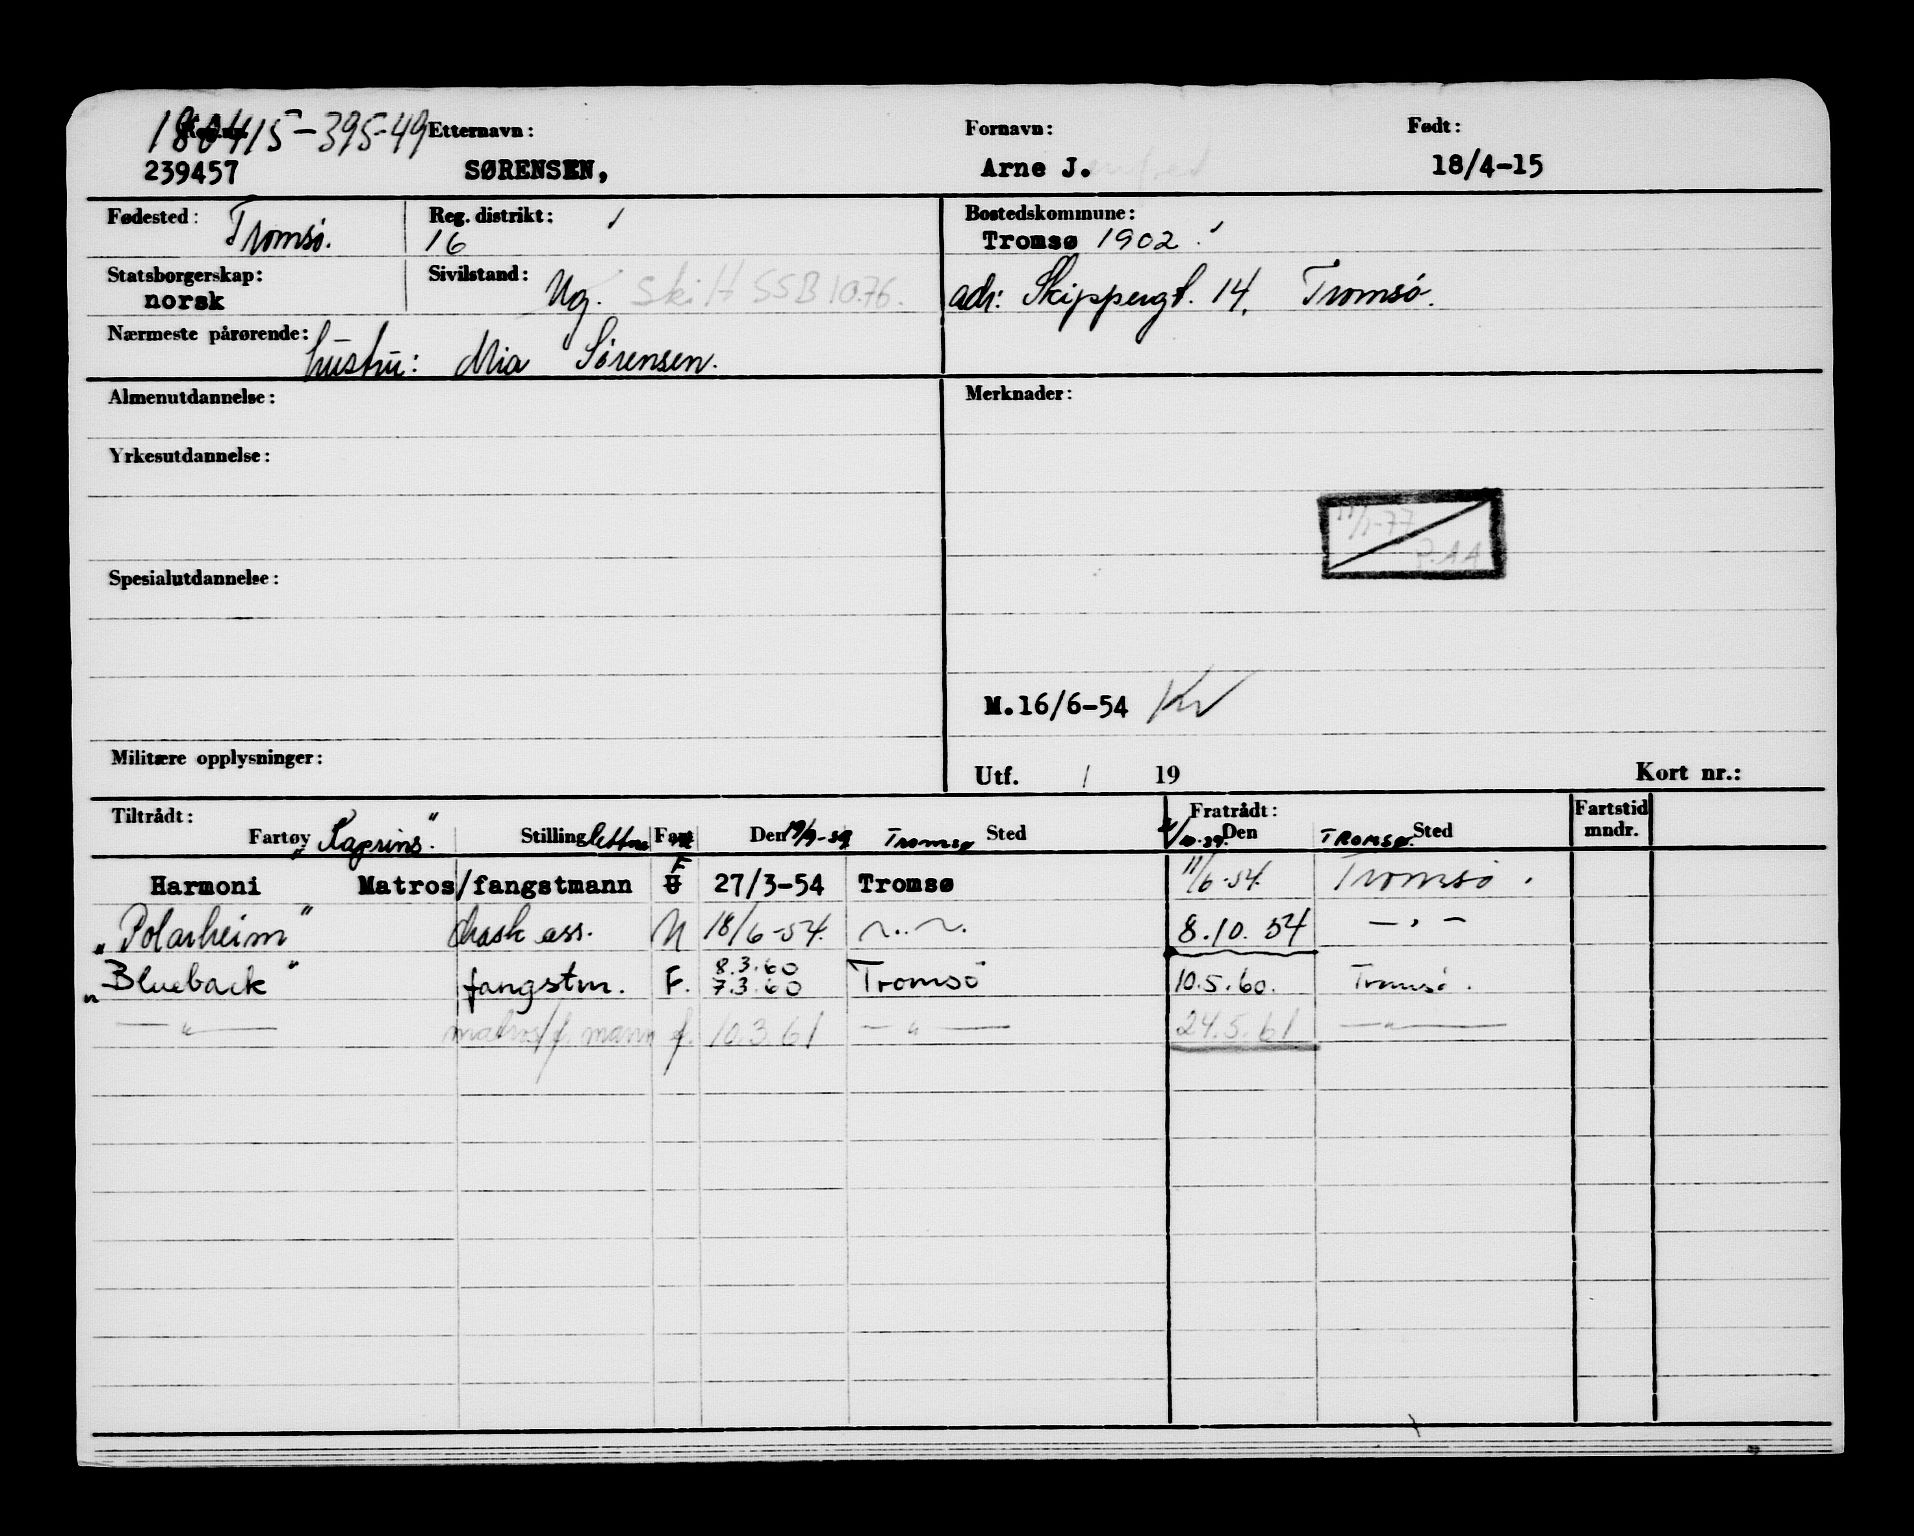 180415-395-49 Etternavn: Fornavn: Født:
239457 SØRENSEN, Arne J. 18/4-15
Fødested: Tromsø. Reg. distrikt: 16 Bostedskommune: Tromsø 1902
Statsborgerskap: norsk Sivilstand: Ug. Skilt SSB 10.76. adr: Skippergt. 14. Tromsø.
Nærmeste pårørende: hustru: Mia Sørensen.
Almenutdannelse: Merknader:
Yrkesutdannelse:
11/1-77
Spesialutdannelse:
M.16/6-54
Militære opplysninger:
Utf. / 19 Kort nr.:
Tiltrådt: Fratrådt: Fartstid
Fartøy Stilling Fart Den Sted Den Sted mndr.
"Kaprins". 19/9-59 Tromsø TROMSØ.
Harmoni Matros/fangstmann F U 27/3-54 Tromsø 11/6-54. Tromsø.
"Polarheim" mask ass. N 18/6-54. — " — 8.10.54 — " —
"Blueback" fangstm. F. 8.3.60 7.3.60 Tromsø 10.5.60. Tromsø.
— " — matros/f. mann f. 10.3.61 — " — 24.5.61 — " —